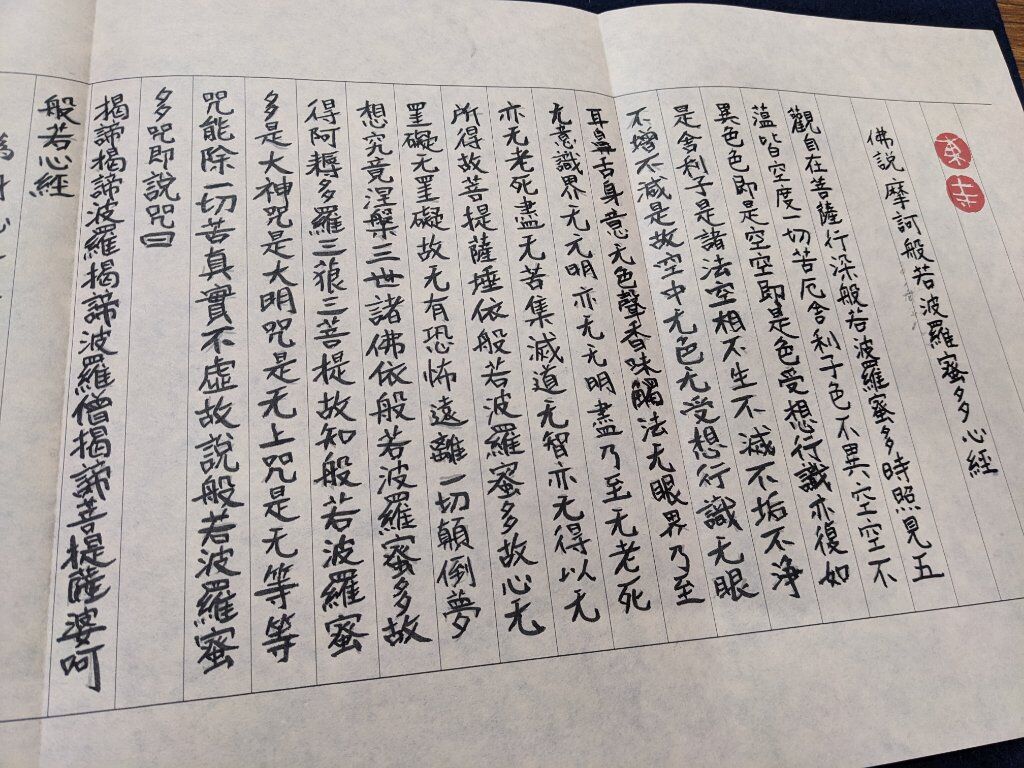 佛説摩訶般若波羅蜜多心經
觀自在菩薩行深般若波羅蜜多時照見五
薀皆空度一切苦厄舍利子色不異空空不
異色色即是空空即是色受想行識亦復如
是舍利子是諸法空相不生不滅不垢不淨
不增不減是故空中无色无受想行識无眼
耳鼻舌身意无色聲香味觸法无眼界乃至
无意識界无无明亦无无明盡乃至无老死
亦无老死盡无苦集滅道无智亦无得以无
所得故菩提薩埵依般若波羅蜜多故心无
罣礙无罣礙故无有恐怖遠離一切顛倒夢
想究竟涅槃三世諸佛依般若波羅蜜多故
得阿耨多羅三藐三菩提故知般若波羅蜜
多是大神咒是大明咒是无上咒是无等等
咒能除一切苦真實不虛故說般若波羅蜜
多咒即說咒曰
揭諦揭諦波羅揭諦波羅僧揭諦菩提薩婆呵
般若心經